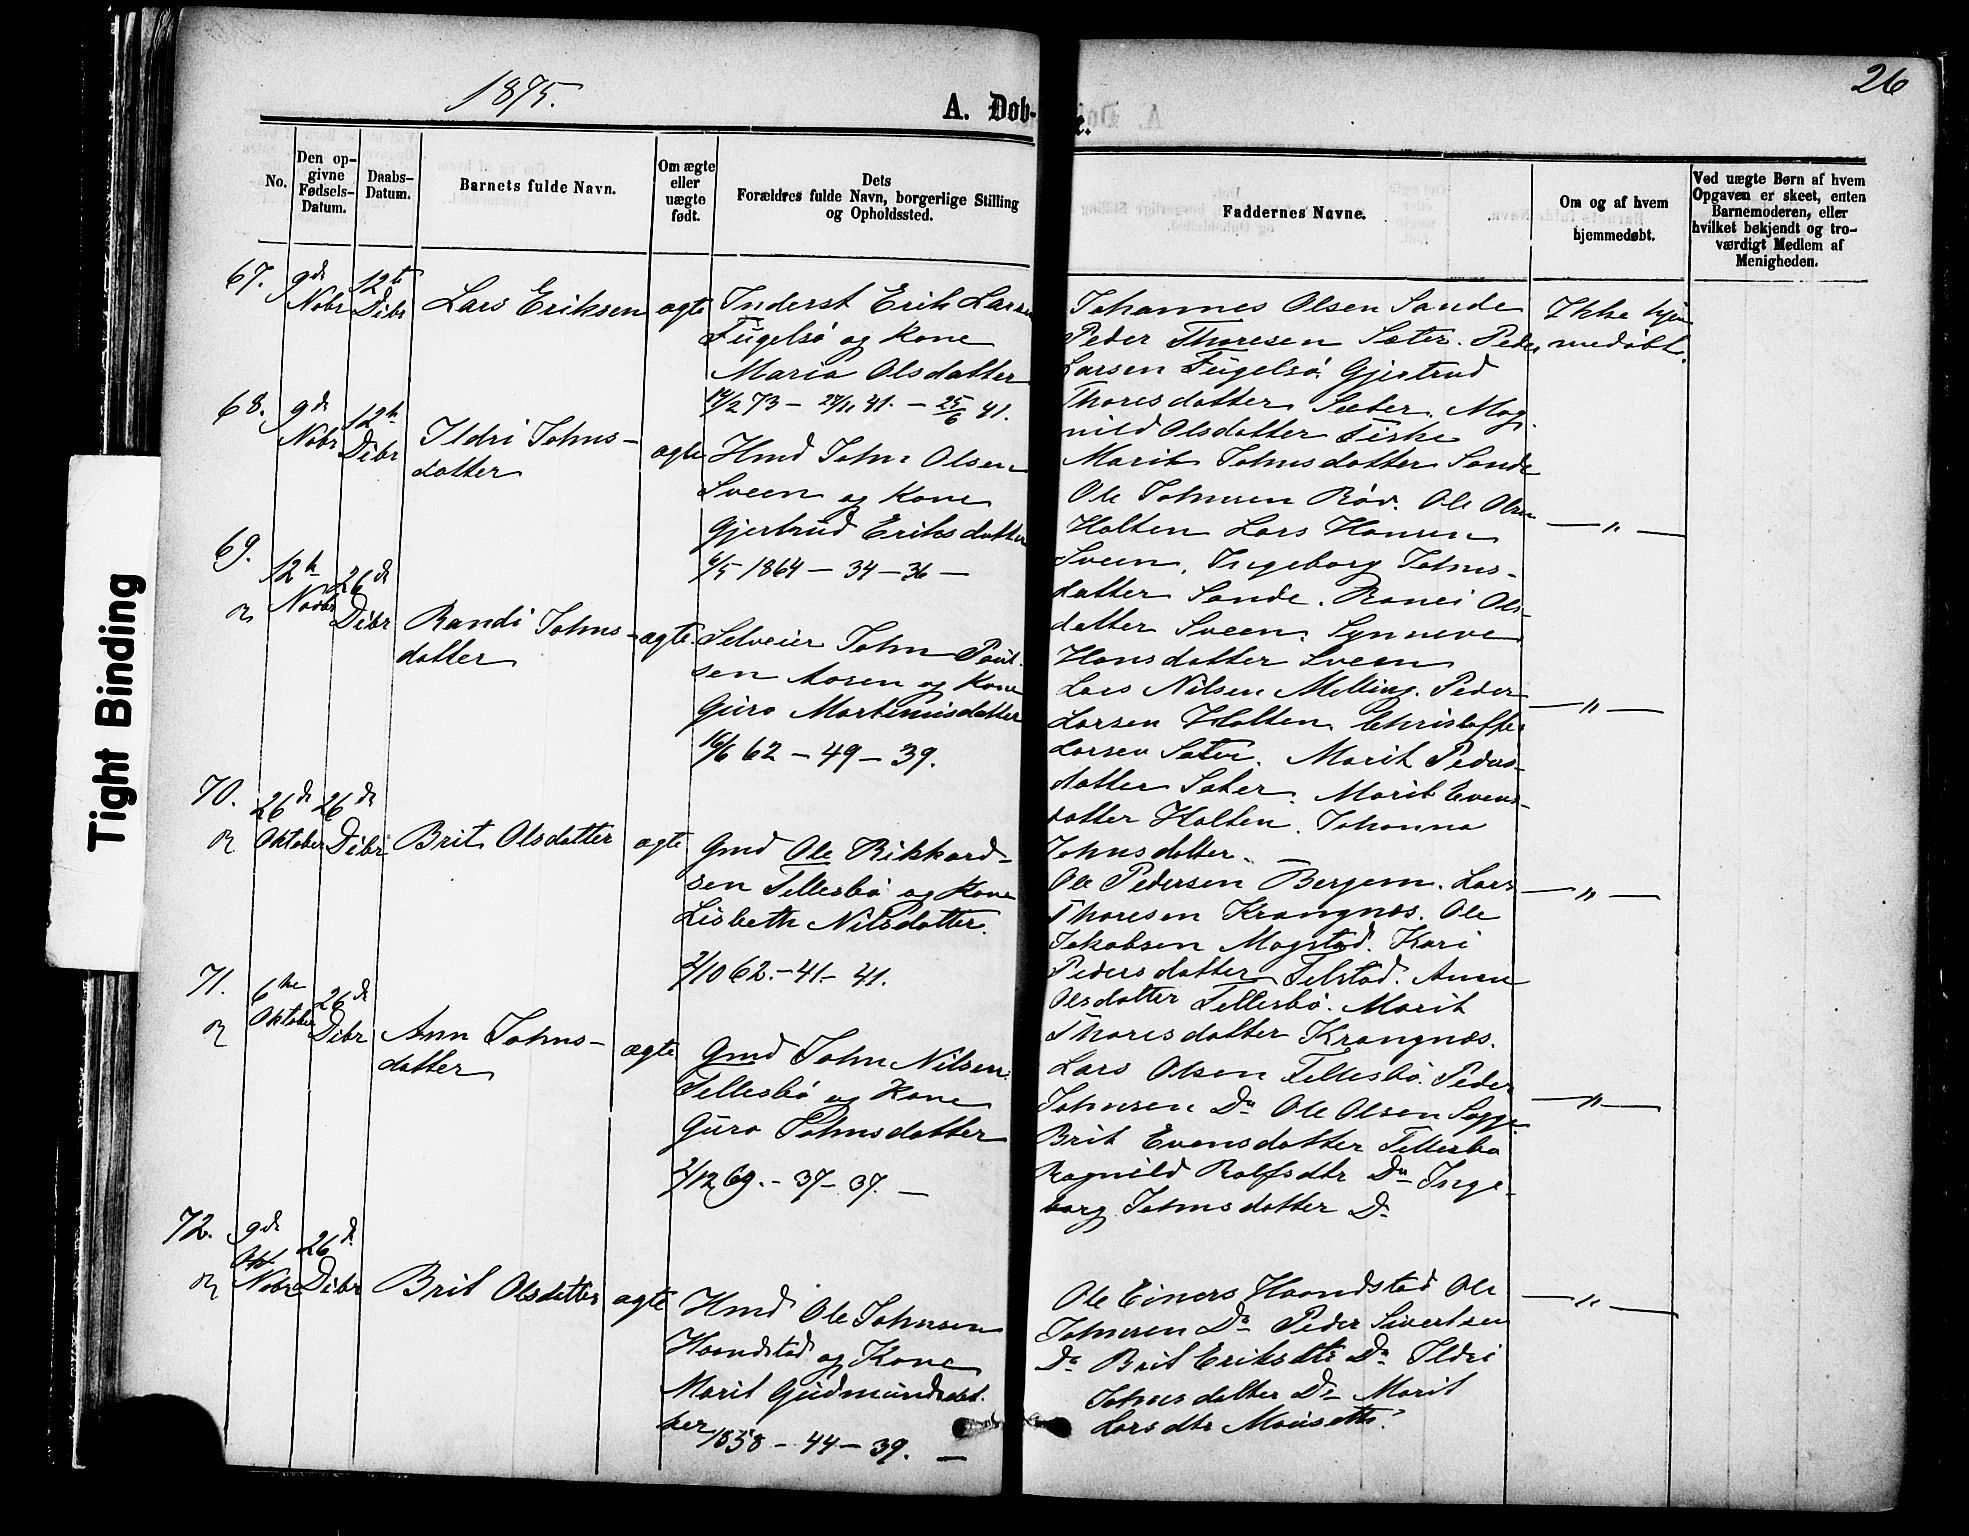 1875.
26
A. Døb-
e.
No.
Den op-
givne
Fødsels-
Datum.
Daabs-
Datum.
Barnets fulde Navn.
Om ægte
eller
uægte
født.
Dets
Forældres fulde Navn, borgerlige Stilling
og Opholdssted.
Faddernes Navne.
Om og af hvem
hjemmedøbt.
Ved uægte Børn af hvem
Opgaven er skeet, enten
Barnemoderen, eller
hvilket bekjendt og tro-
værdigt Medlem af
Menigheden.
67.
9de
Nobr
12te
Dibr
Lars Eriksen
ægte
Inderst Erik Larsen
Fugelsø og Kone
Maria Olsdatter
Johannes Olsen Sande
Peder Thoresen Sæter. Peder
Larsen Fugelsø. Gjertrud
Thoresdatter Sæter. Mag
nild Olsdatter Fiske
Marit Johnsdatter Sande
Ikke hjem
medøbt.
68.
9de
Nobr
12te
Dibr
Ildri Johns-
datter
ægte
Hmd John Olsen
Sveen og Kone
Gjertrud Eriksdatter
6/5 1864 — 34 — 36 —
Ole Johnsen Rød. Ole Olsen
Holten Lars Hansen
Sveen. Ingeborg Johns-
datter Sande. Ranei Ols-
datter Sveen. Synneve
Hansdatter Sveen
— " —
69.
12te
Novbr
26de
Dibr
Randi Johns-
datter
ægte.
Selveier John Poul-
sen Aasen og Kone
Guro Martinusdatter
16/6 62 — 49 — 39.
Lars Nilsen Melling. Peder
Larsen Holten. Christoffer
Larsen Sæter. Marit Peders-
datter Sæter. Marit Evens-
datter Holten. Johanna
Johnsdatter. —
— " —
70.
26de
Oktober
26de
Dibr
Brit Olsdatter
ægte
Gmd Ole Rikkard-
sen Tellesbø og Kone
Lisbeth Nilsdatter.
2/10 62. — 41. — 41.
Ole Pedersen Bergem. Lars
Thoresen Krangnæs. Ole
Jakobsen Magstad. Kari
Pedersdatter Telstad. Anne
Olsdatter Tellesbø. Marit
Thoresdatter Krangnæs.
— " —
71.
6te
Oktober
26de
Dibr
Ann Johns-
datter
ægte
Gmd John Nilsen
Tellesbø og Kone
Guro Johnsdatter
2/12 69. — 37 — 37. —
Lars Olsen Tellesbø. Peder
Johnsen Do Ole Olsen Sogge
Brit Evensdatter Tellesbø
Ragnild Rolfsdtr Do Inge-
borg Johnsdatter Do
— " —
72.
9de
Nobr
26de
Dibr
Brit Olsdatter
ægte
Hmd Ole Johnsen
Haandstad og Kone
Marit Gudmundsdat.
ter
1858 — 44 — 39. —
Ole Einers Haandstad Ole
Johnsen Do Peder Sivertsen
Do Brit Eriksdtr Do Ildri
Johnsdatter Do Marit
Larsdtr
— " —
Tight Binding